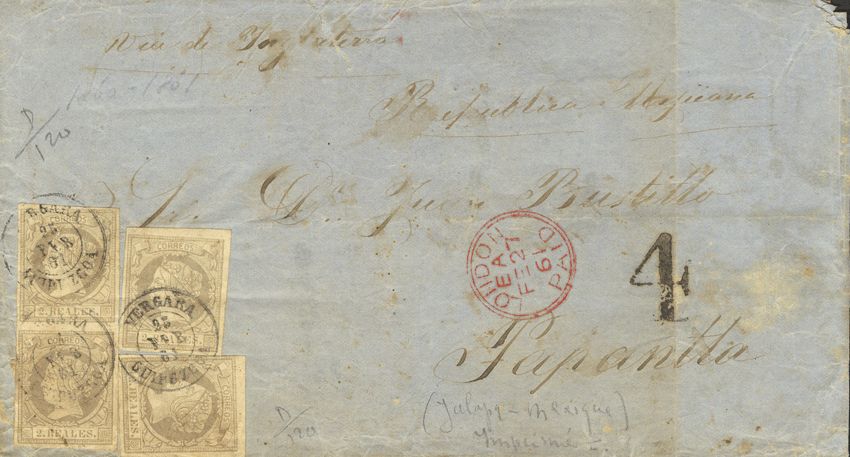 Via de Inglaterra
1860-1861
P/120
Republica Mejicana
Sr. Dn. Juan Bustillo
VERGARA
25
FEB
61
GUIPUZCOA
CORREOS
2. REALES.
CORREOS
VERGARA
25
FEB
61
GUIPUZCOA
LONDON
EA
FE 27
61
PAID
4
CORREOS
2. REALES.
Papantla
P/120
(Jalapa - Mexique)
Imprimé